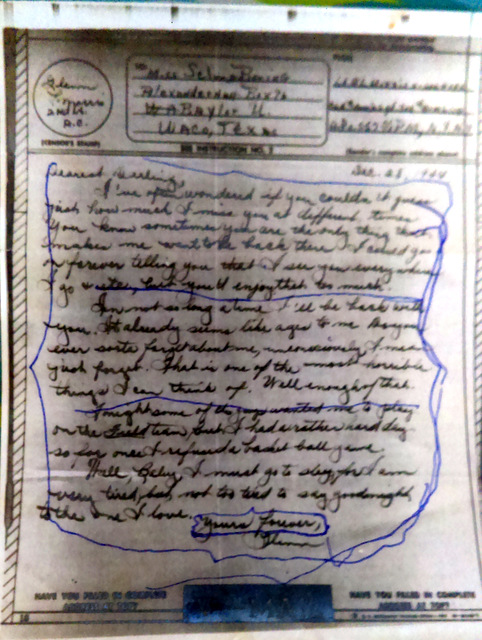 TO:
FROM
Glenn
Miss Selma
Alexander Box
Baylor U.
Waco, Texas
(CENSOR'S STAMP)
SEE INSTRUCTION NO. 2
(Sender's complete address above)
Dearest Darling,
I've often wondered if you couldn't guess
just how much I miss you at different times
You know sometimes you are the only thing that
makes me want to be back there. I could go
on forever telling you that I see you everywhere
I go &, but you'd enjoy that too much.
In not so long a time I'll be back with
you. It already seems like ages to me. Do you
ever sorta forget about me, I mean
just forget. That is one of the most horrible
things I can think of. Well enough of that.
Tonight some of the guys wanted me to play
on the team, but I had a rather hard day
so for once I refused a basket ball game.
Well, Baby, I must go to sleep, for I am
very tired, but not too tired to say goodnight
to the one I love. Yours forever,
Glenn
HAVE YOU FILLED IN COMPLETE
ADDRESS AT TOP?
HAVE YOU FILLED IN COMPLETE
ADDRESS AT TOP?